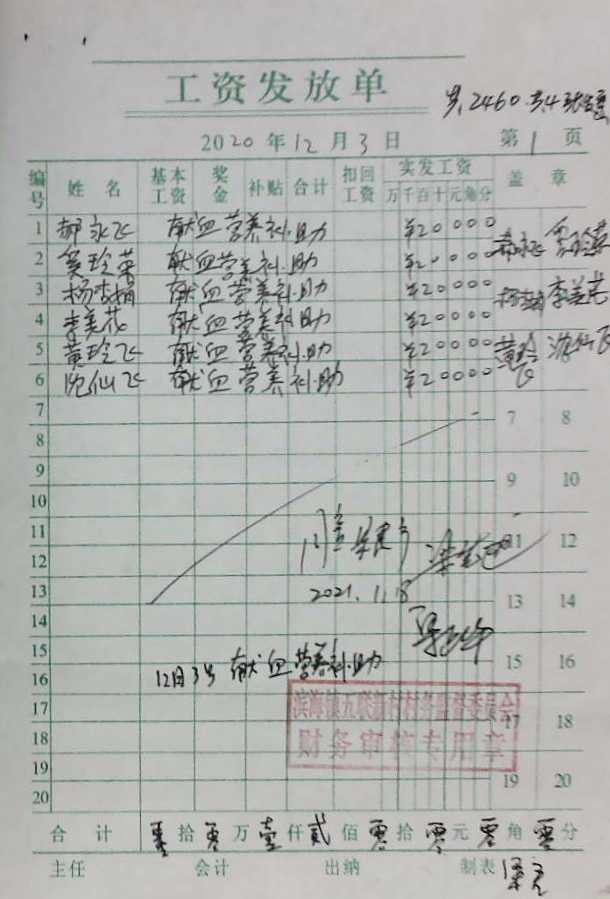 工资发放单
2020年12月3日 第1页
编号 姓名 基本工资 奖金 补贴 合计 扣回工资 实发工资 盖章
万千百十元角分
1 郝永飞 献血营养补助 ¥20000
2 吴玲荣 献血营养补助 ¥20000
3 杨杏娟 献血营养补助 ¥20000
4 李美花 献血营养补助 ¥20000 李美花
5 黄玲飞 献血营养补助 ¥20000 黄玲飞 沈仙飞
6 沈仙飞 献血营养补助 ¥20000
7 7 8
8
9 9 10
10
11 11 12
12
13 2021.1.18 13 14
14
15 15 16
16 12月3号 献血营养补助
17 滨海镇五联新村村务监督委员会 17 18
18 财务审核专用章
19 19 20
20
合计 零拾零万壹仟贰佰零拾零元零角零分
主任 会计 出纳 制表